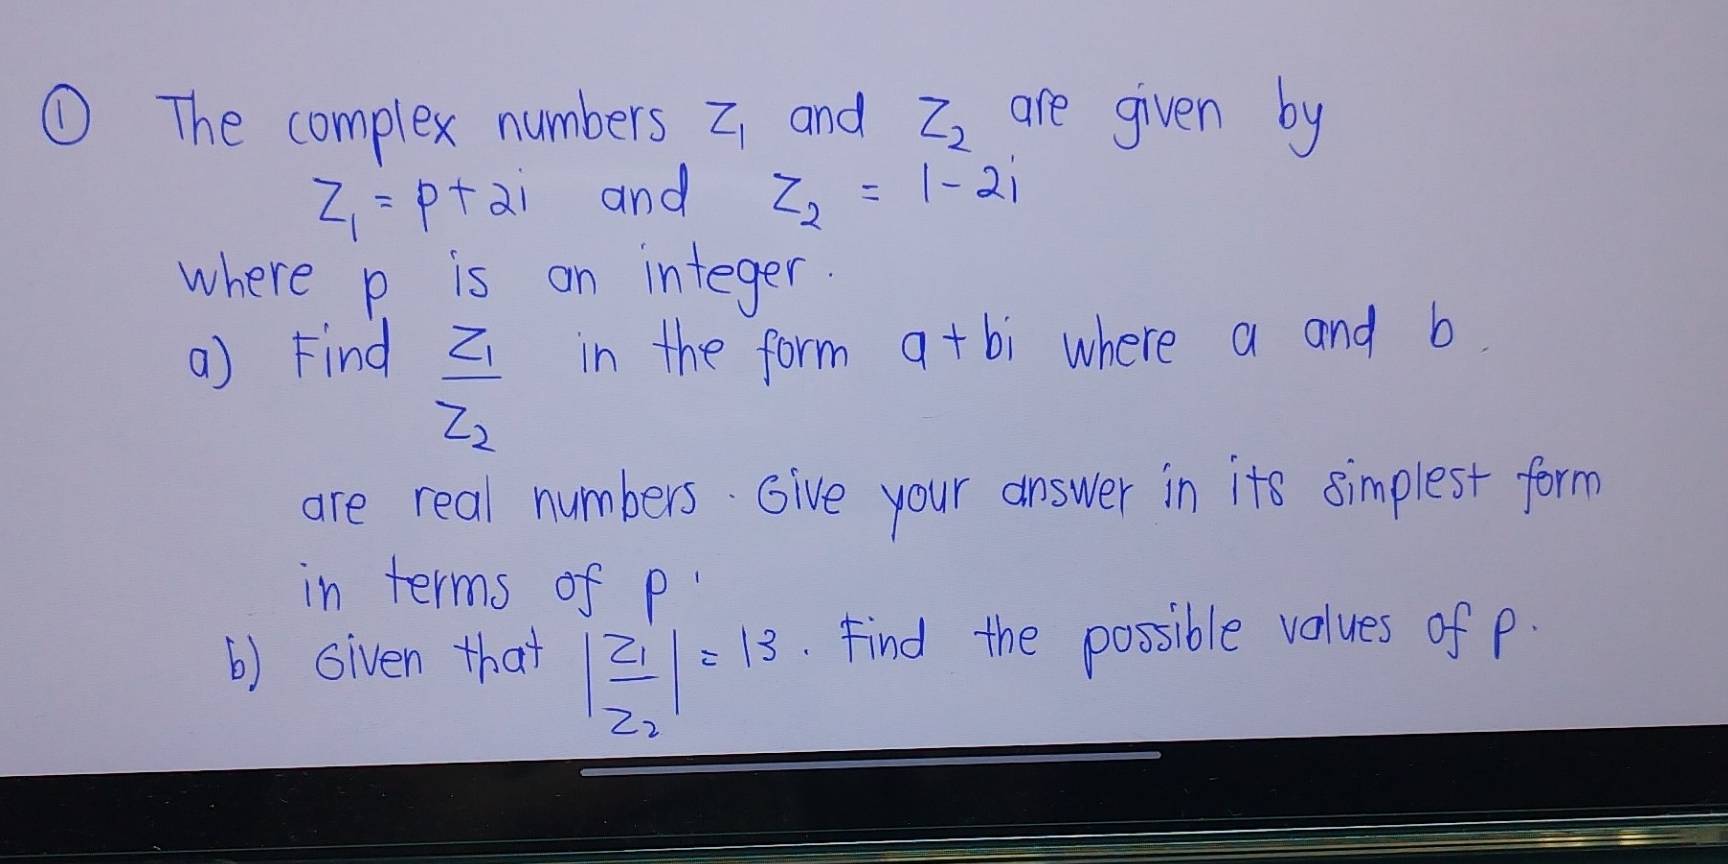 ① The complex numbers z₁ and z₂ are given by
z₁ = p + 2i and z₂ = 1 - 2i
where p is an integer.
a) Find z₁/z₂ in the form a + bi where a and b.
are real numbers. Give your answer in its simplest form
in terms of p.
b) Given that |z₁/z₂| = 13. Find the possible values of p.